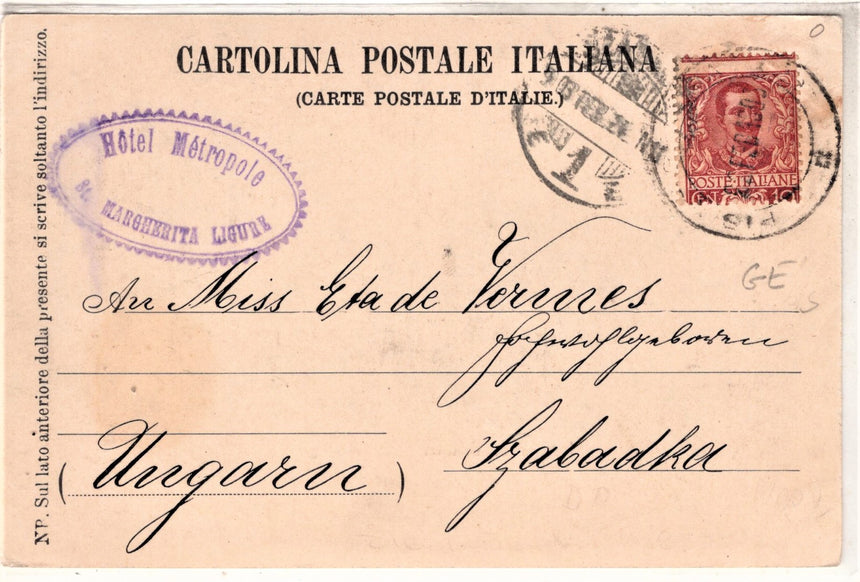 CARTOLINA POSTALE ITALIANA
(CARTE POSTALE D'ITALIE.)
Hôtel Métropole
St. MARGHERITA LIGURE
POSTE·ITALIANE
PIS
GE
An Miss Eta de Vermes
Hochwohlgeboren
Szabadka
(Ungarn)
NB. Sul lato anteriore della presente si scrive soltanto l'indirizzo.